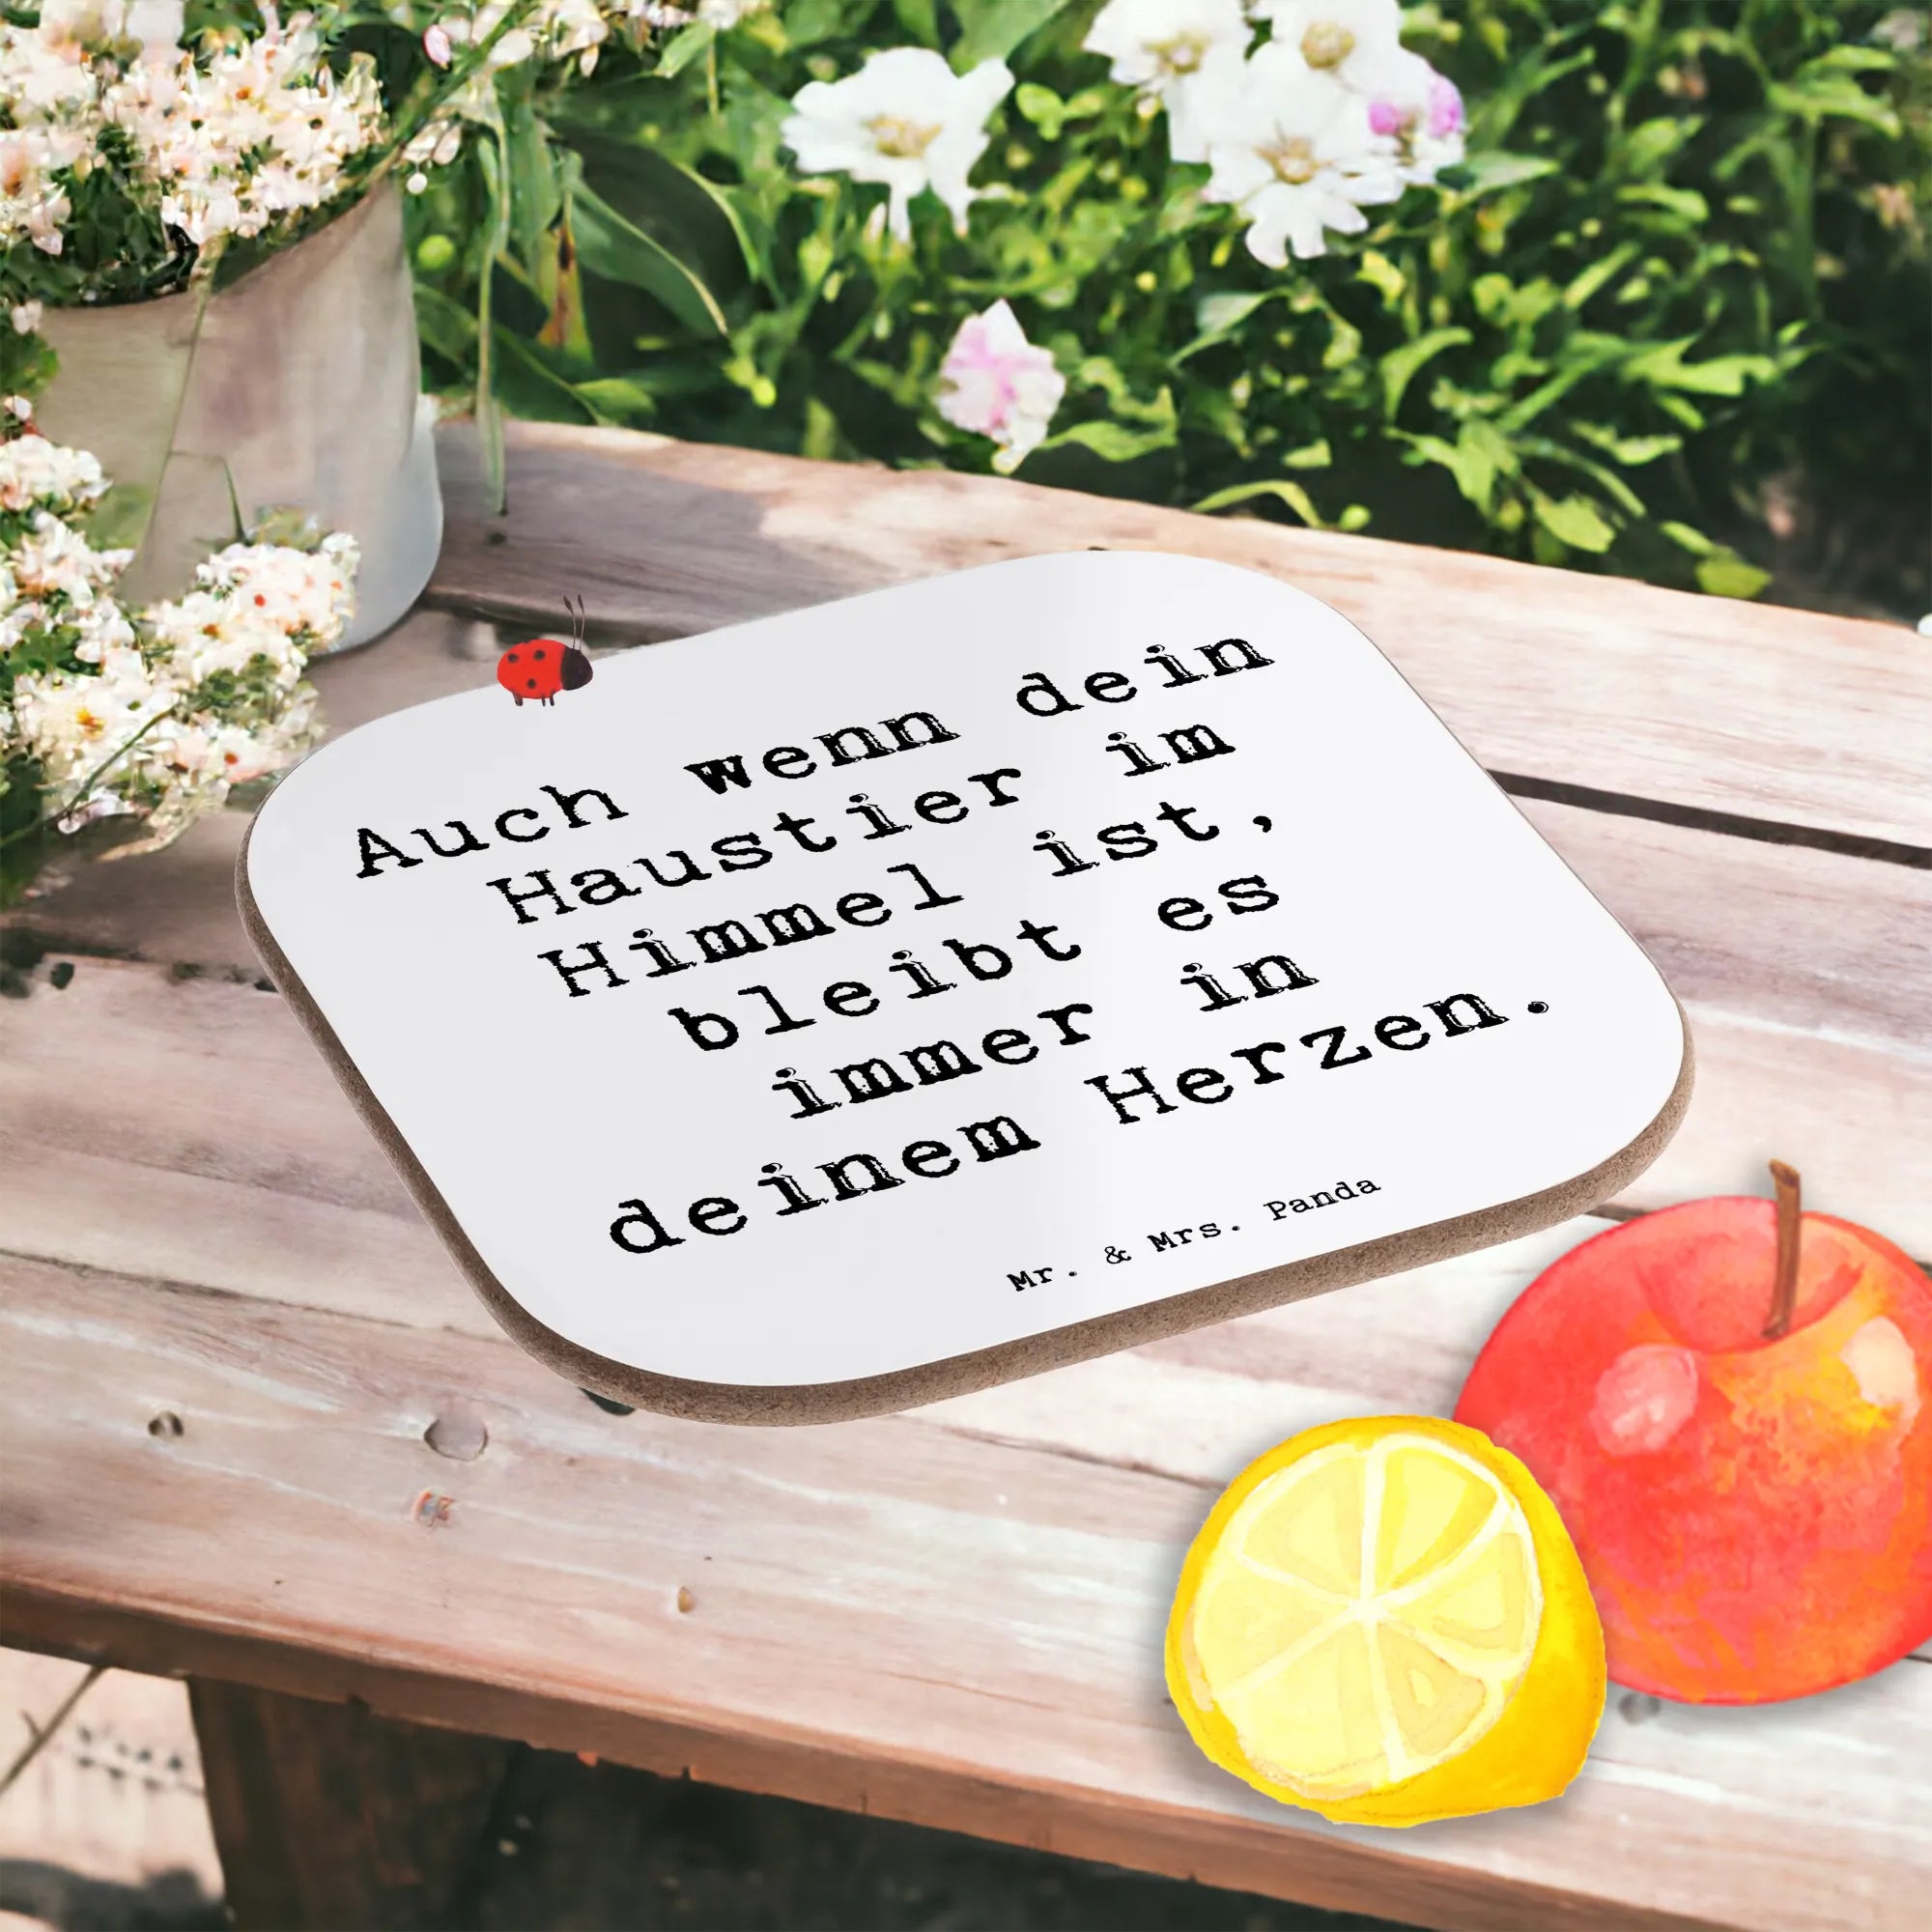 Auch wenn dein
Haustier im
Himmel ist,
bleibt es
immer in
deinem Herzen.
Mr. & Mrs. Panda